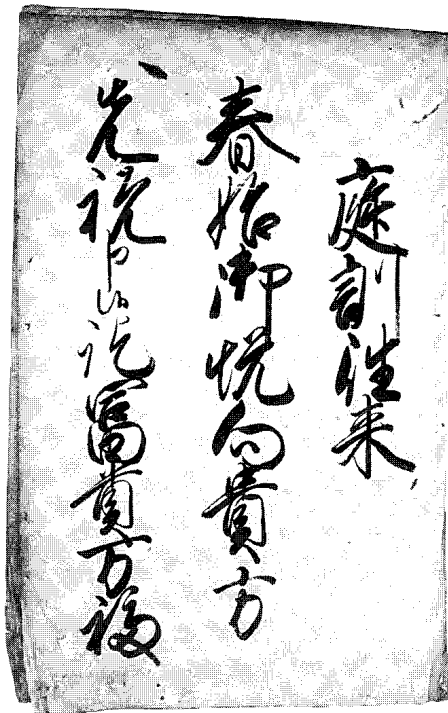 庭訓往来
春始御悦向貴方
先祝申候訖富貴万福